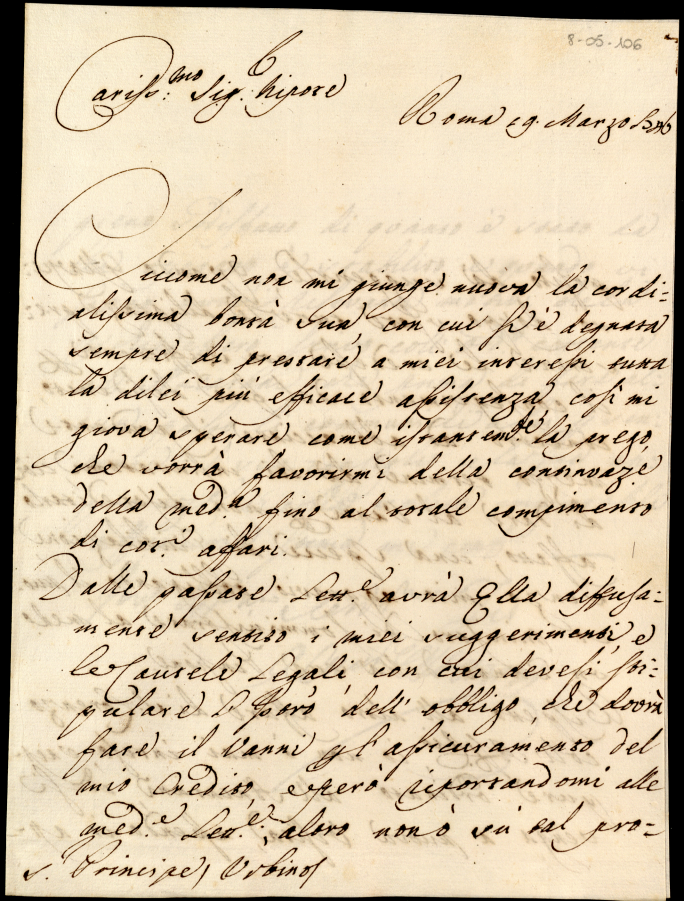 8-05-106
Cariss:mo Sig.r Nipote
Roma 19. Marzo
Siccome non mi giunge nuova la cordi=
alissima bontà sua, con cui si è degnata
sempre di prestare a miei interessi tutta
la di lei più efficace assistenza, così mi
giova sperare come istantem.te la prego,
che vorrà favorirmi della continuaz.e
della med.a fino al totale compimento
di cot.i affari.
Dalle passate Lett.e avrà Ella diffusa=
mente sentito i miei suggerimenti, e
le Cautele Legali, con cui devesi sti=
pulare dell' obbligo, che dovrà
fare il Vanni p l'assicuramento del
mio Credito, e però riportandomi alle
med.e Lett.e, altro non ò sù tal pro=
S. Principe, Urbino